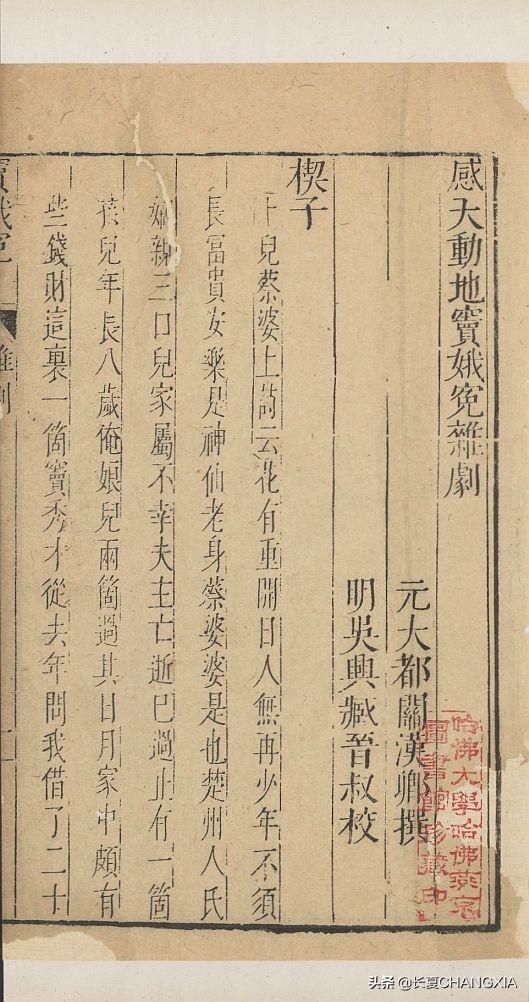 感天動地竇娥冤雜劇
元大都關漢卿撰
明吳興臧晉叔校
楔子
卜兒蔡婆上詩云花有重開日人無再少年不須
長富貴安樂是神仙老身蔡婆婆是也楚州人氏
嫡親三口兒家屬不幸夫主亡逝已過止有一箇
孩兒年長八歲俺娘兒兩箇過其日月家中頗有
些錢財這裏一箇竇秀才從去年問我借了二十
竇娥冤
雜劇
一
哈佛大學哈佛燕京
圖書館珍藏印
头条 @长夏CHANGXIA